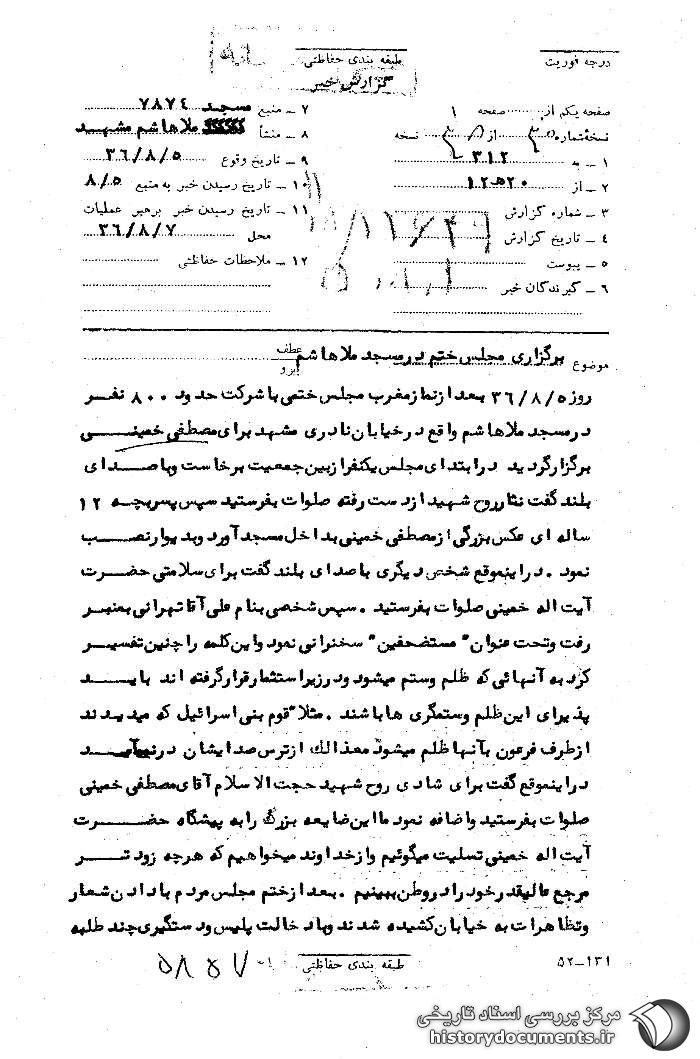 درجه فوریت
طبقه بندی حفاظتی
گزارش خبر
صفحه یکم از صفحه ۱
نسخه شماره از نسخه
۱ - به ۳۱۲
۲ - از ۱۲ﻫ۲۰
۳ - شماره گزارش
۴ - تاریخ گزارش
۵ - پیوست
۶ - گیرندگان خبر
۷ - منبع ۷۸۷۴ مسجد
۸ - منشأ ملاهاشم مشهد
۹ - تاریخ وقوع ۳۶/۸/۵
۱۰ - تاریخ رسیدن خبر به منبع ۸/۵
۱۱ - تاریخ رسیدن خبر برهبر عملیات
محل ۳۶/۸/۷
۱۲ - ملاحظات حفاظتی
موضوع برگزاری مجلس ختم در مسجد ملاهاشم
عطف
روز ۳۶/۸/۵ بعد از نماز مغرب مجلس ختمی با شرکت حدود ۸۰۰ نفر
در مسجد ملاهاشم واقع در خیابان نادری مشهد برای مصطفی خمینی
برگزار گردید در ابتدای مجلس یکنفر از بین جمعیت برخاست و با صدای
بلند گفت نثار روح شهید از دست رفته صلوات بفرستید سپس پسربچه ۱۲
ساله ای عکس بزرگی از مصطفی خمینی بداخل مسجد آورد و بدیوار نصب
نمود . در اینموقع شخص دیگری با صدای بلند گفت برای سلامتی حضرت
آیت اله خمینی صلوات بفرستید . سپس شخصی بنام علی آقا تهرانی بمنبر
رفت و تحت عنوان " مستضعفین " سخنرانی نمود و این کلمه را چنین تفسیر
کرد به آنهائی که ظلم و ستم میشود و در زیر استثمار قرار گرفته اند باید
پذیرای این ظلم و ستمگری ها باشند . مثلا" قوم بنی اسرائیل که میدیدند
از طرف فرعون بآنها ظلم میشود معذالك از ترس صدایشان در نمیآمد
در اینموقع گفت برای شادی روح شهید حجت الاسلام آقای مصطفی خمینی
صلوات بفرستید و اضافه نمود ما این ضایعه بزرگ را به پیشگاه حضرت
آیت اله خمینی تسلیت میگوئیم و از خداوند میخواهیم که هرچه زود تر
مرجع عالیقدر خود را در وطن ببینیم . بعد از ختم مجلس مردم با دادن شعار
و تظاهرات به خیابان کشیده شدند و با دخالت پلیس و دستگیری چند طلبه
طبقه بندی حفاظتی
۵۲-۱۳۱
مرکز بررسی اسناد تاریخی
historydocuments.ir